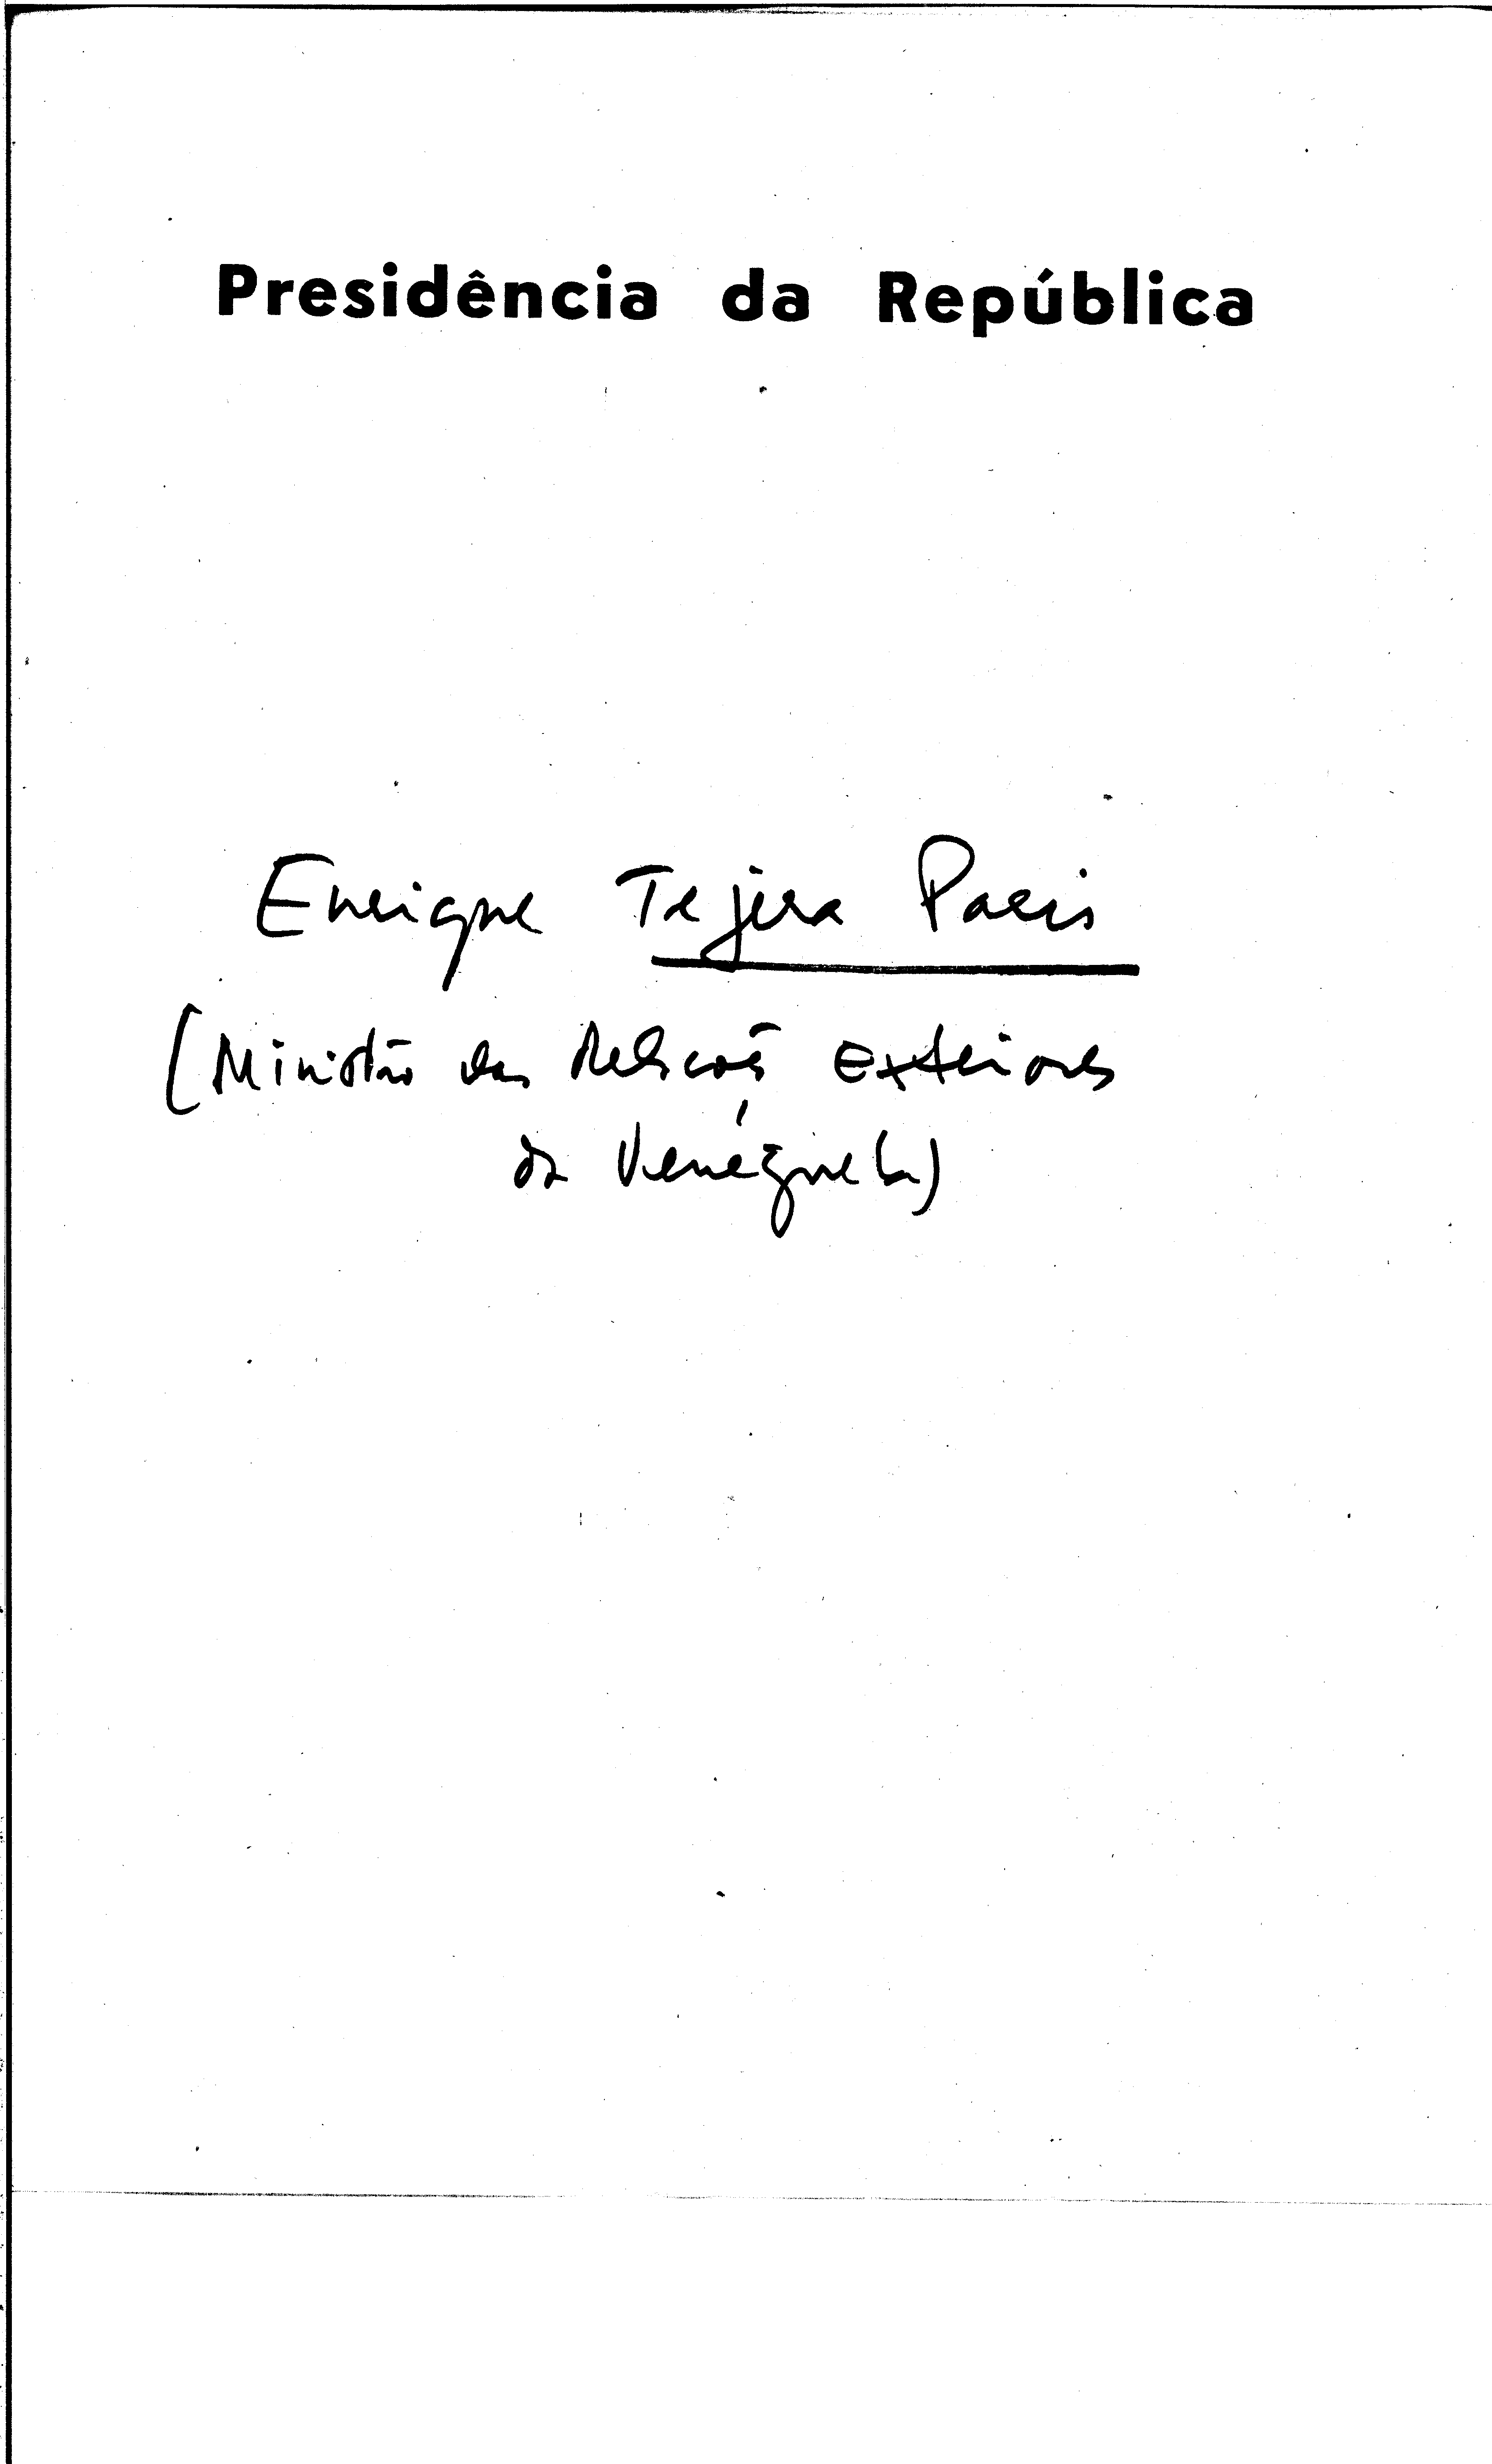 Presidência da República
Enrique Tejera Paris
(Ministro das Relações Exteriores
da Venézuela)